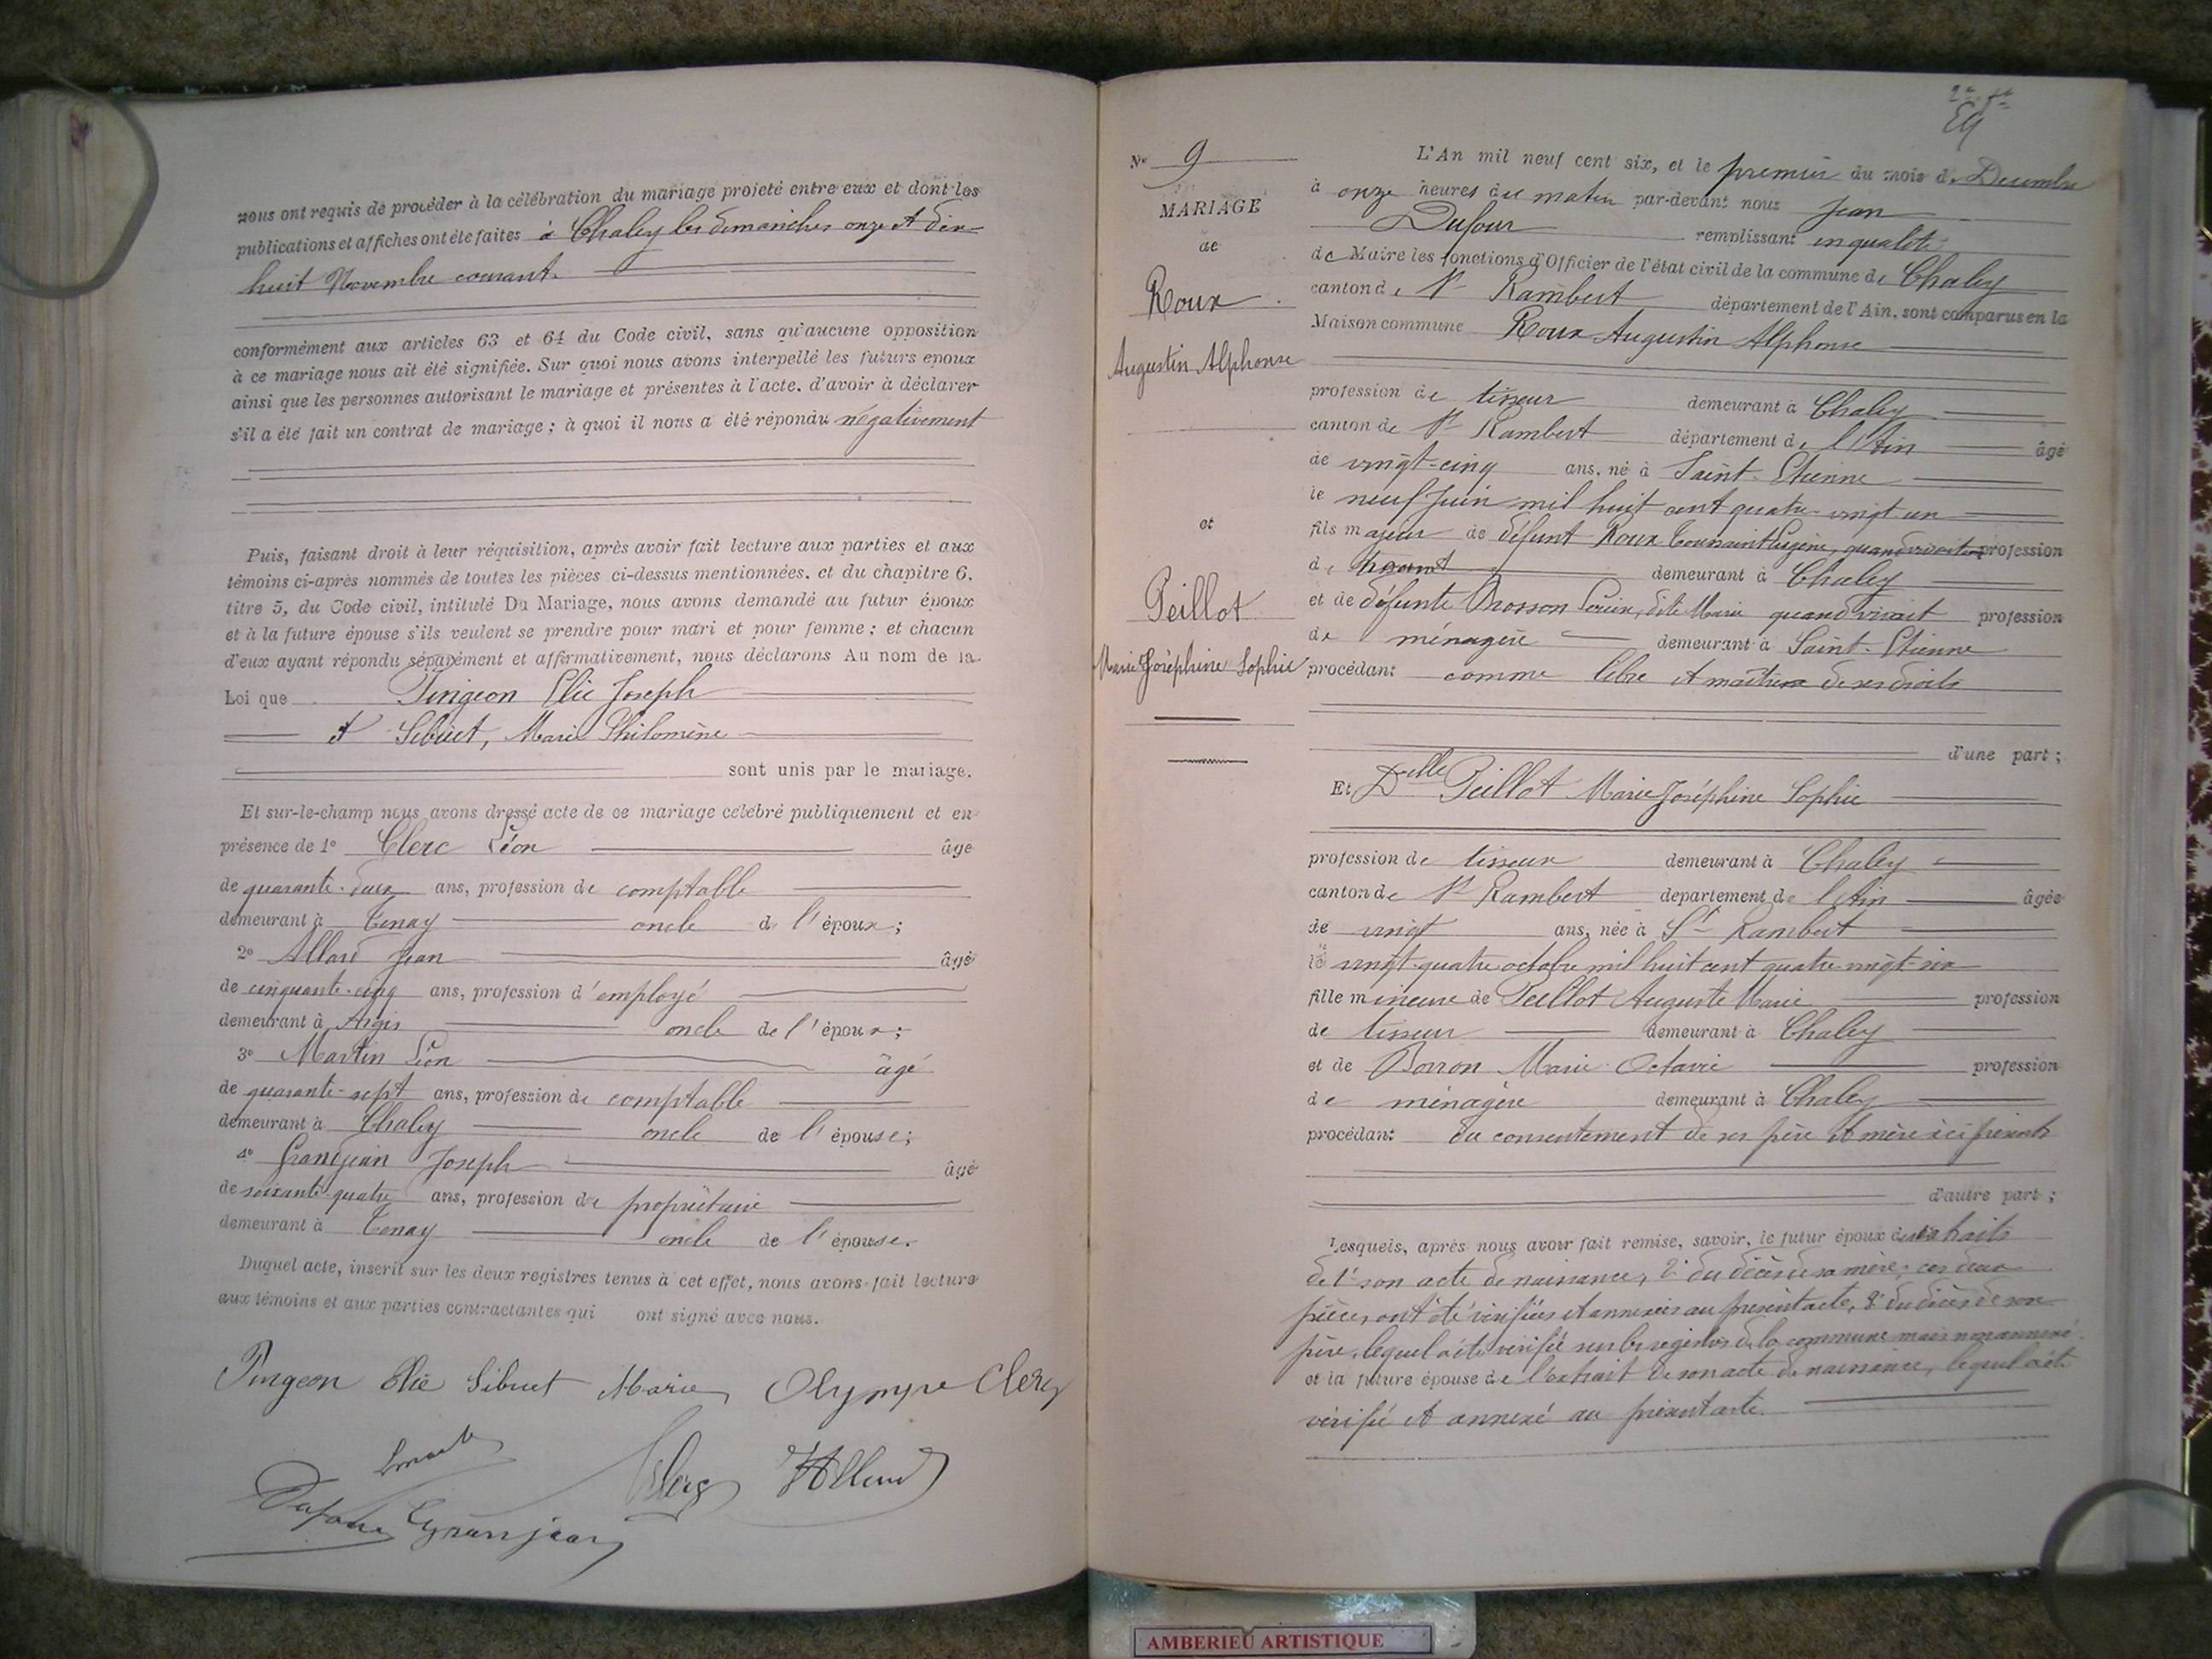 nous ont requis de procéder à la célébration du mariage projeté entre eux et dont les
publications et affiches ont été faites à Chaley les dimanches onze et dix-
huit Novembre courant.
conformément aux articles 63 et 64 du Code civil, sans qu'aucune opposition
à ce mariage nous ait été signifiée. Sur quoi nous avons interpellé les futurs epoux
ainsi que les personnes autorisant le mariage et présentes à l'acte, d'avoir à déclarer
s'il a été fait un contrat de mariage ; à quoi il nous a été répondu négativement
Puis, faisant droit à leur réquisition, après avoir fait lecture aux parties et aux
témoins ci-après nommés de toutes les pièces ci-dessus mentionnées, et du chapitre 6,
titre 5, du Code civil, intitulé Du Mariage, nous avons demandé au futur époux
et à la future épouse s'ils veulent se prendre pour mari et pour femme ; et chacun
d'eux ayant répondu séparément et affirmativement, nous déclarons Au nom de la
Loi que Pingeon Elie Joseph
et Sibuet, Marie Philomène
sont unis par le mariage.
Et sur-le-champ nous avons dressé acte de ce mariage célébré publiquement et en
présence de 1° Clerc Léon âgé
de quarante-deux ans, profession de comptable
demeurant à Tenay oncle de l'époux ;
2° Allard Jean âgé
de cinquante-cinq ans, profession d'employé
demeurant à Argis oncle de l'époux ;
3° Martin Léon âgé
de quarante-sept ans, profession de comptable
demeurant à Chaley oncle de l'épouse ;
4° Grandjean Joseph âgé
de soixante-quatre ans, profession de propriétaire
demeurant à Tenay oncle de l'épouse.
Duquel acte, inscrit sur les deux registres tenus à cet effet, nous avons fait lecture
aux témoins et aux parties contractantes qui ont signé avec nous.
Pingeon Elie Sibuet Marie Olympe Clerc
Clerc Allard
Dufour Granjean
N° 9
MARIAGE
de
Roux
Augustin Alphonse
et
Peillot
Marie Joséphine Sophie
L'An mil neuf cent six, et le premier du mois de Décembre
à onze heures du matin par-devant nous Jean
Dufour remplissant en qualité
de Maire les fonctions d'Officier de l'état civil de la commune de Chaley
canton de St Rambert département de l'Ain, sont comparus en la
Maison commune Roux Augustin Alphonse
profession de tisseur demeurant à Chaley
canton de St Rambert département de l'Ain âgé
de vingt-cinq ans, né à Saint-Etienne
le neuf Juin mil huit cent quatre-vingt-un
fils majeur de défunt Roux Toussaint Eugène, quand vivait profession
de demeurant à Chaley
et de défunte Brosson Louise, dite Marie quand vivait profession
de ménagère demeurant à Saint-Etienne
procédant comme libre et maître de ses droits
d'une part ;
Et Delle Peillot Marie Joséphine Sophie
profession de tisseur demeurant à Chaley
canton de St Rambert département de l'Ain âgée
de vingt ans, née à St Rambert
le vingt-quatre octobre mil huit cent quatre-vingt-six
fille mineure de Peillot Auguste Marie profession
de tisseur demeurant à Chaley
et de Borron Marie Octavie profession
de ménagère demeurant à Chaley
procédant du consentement de ses père et mère ici présents
d'autre part ;
Lesquels, après nous avoir fait remise, savoir, le futur époux des extraits
de 1° son acte de naissance, 2° du décès de sa mère ; ces deux
pièces ont été vérifiées et annexées au présent acte, 3° du décès de son
père, lequel a été vérifié sur les registres de la commune mais non annexé
et la future épouse de l'extrait de son acte de naissance, lequel a été
vérifié et annexé au présent acte.
AMBERIEU ARTISTIQUE